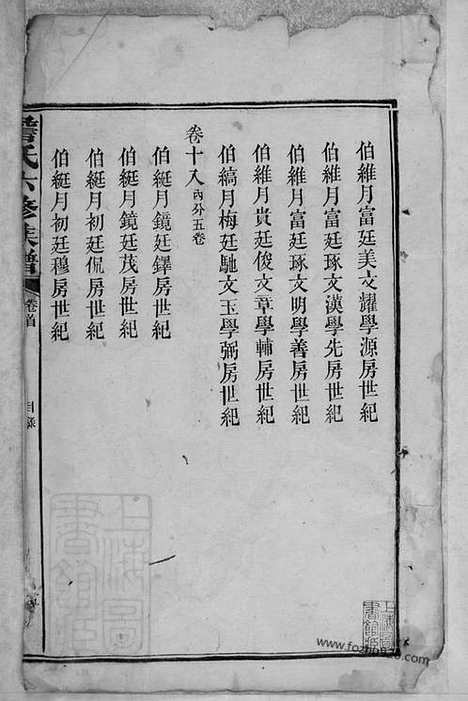 伯維月富廷美文耀學源房世紀
伯維月富廷琢文漢學先房世紀
伯維月富廷琢文明學善房世紀
伯維月貴廷俊文章學輔房世紀
伯縞月梅廷馳文玉學弼房世紀
卷十八內外五卷
伯綎月鏡廷鐸房世紀
伯綎月鏡廷茂房世紀
伯綎月初廷侃房世紀
伯綎月初廷穆房世紀
氏六修族譜
卷首
目錄
上海圖書館藏
上海圖書館藏
www.foz